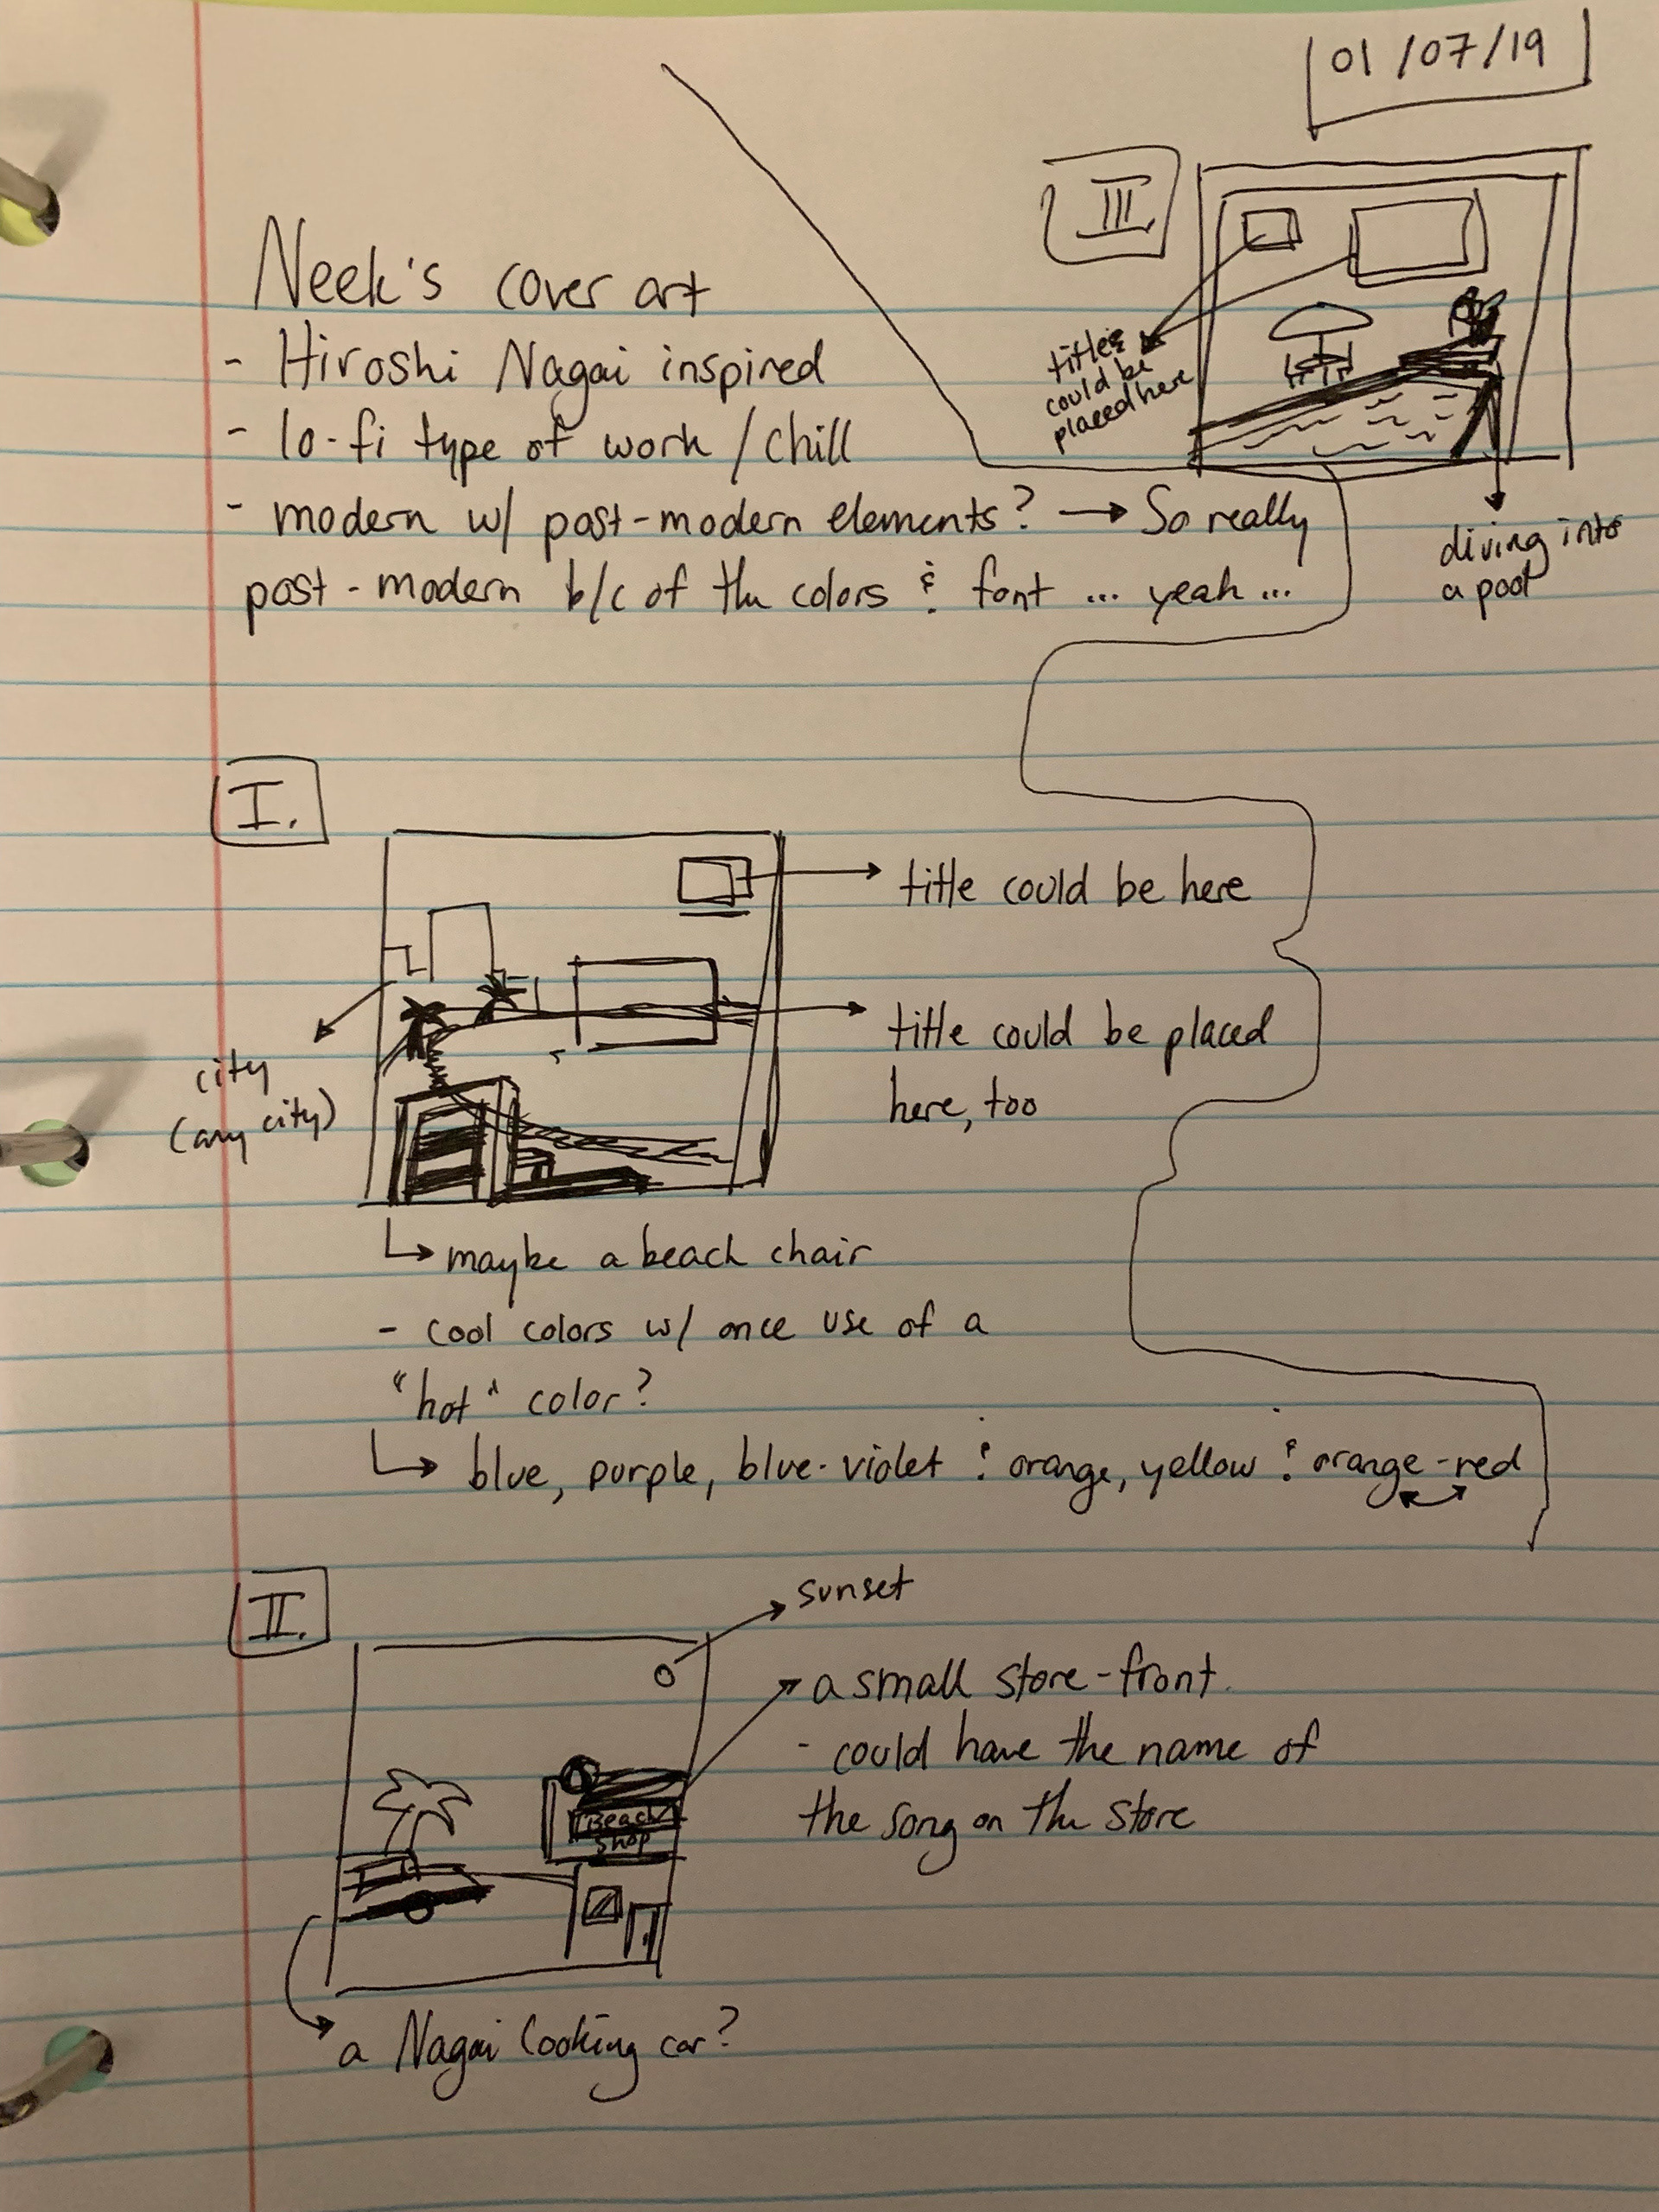 01/07/19
Neek's cover art
- Hiroshi Nagai inspired
- lo-fi type of work / chill
- modern w/ post-modern elements? → So really
post-modern b/c of the colors & font ... yeah ...
III
titles
could be
placed here
diving into
a pool
I.
title could be here
title could be placed
here, too
city
(any city)
↳ maybe a beach chair
- cool colors w/ once use of a
"hot" color?
↳ blue, purple, blue-violet & orange, yellow & orange-red
II.
sunset
a small store-front
- could have the name of
the song on the store
Beach
Shop
a Nagai looking car?